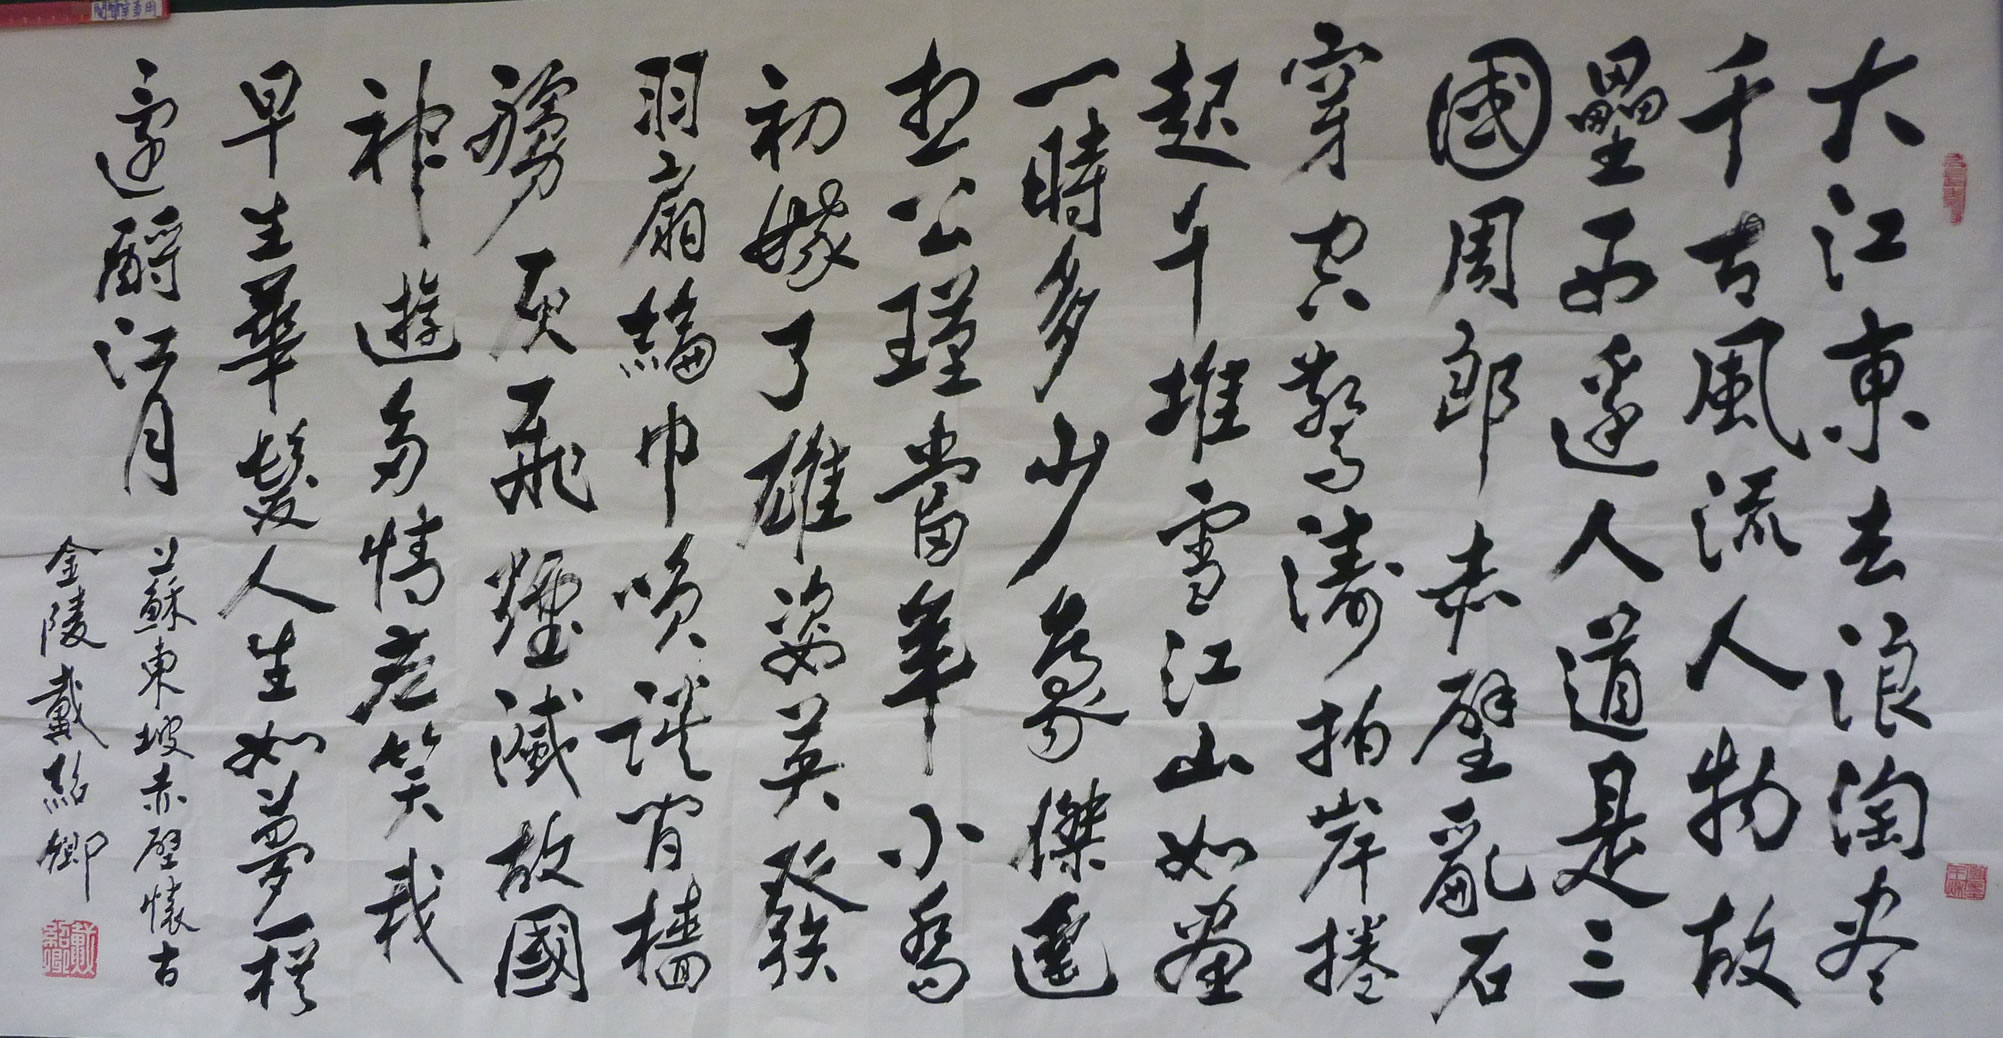 大江東去浪淘尽
千古風流人物故
壘西邊人道是三
國周郎赤壁亂石
穿空驚濤拍岸捲
起千堆雪江山如畫
一時多少豪傑遥
想公瑾當年小喬
初嫁了雄姿英發
羽扇綸巾唤談間檣
艣灰飛煙滅故國
神遊多情應笑我
早生華髮人生如夢一樣
還酹江月
蘇東坡赤壁懷古
金陵戴紹卿
戴紹卿